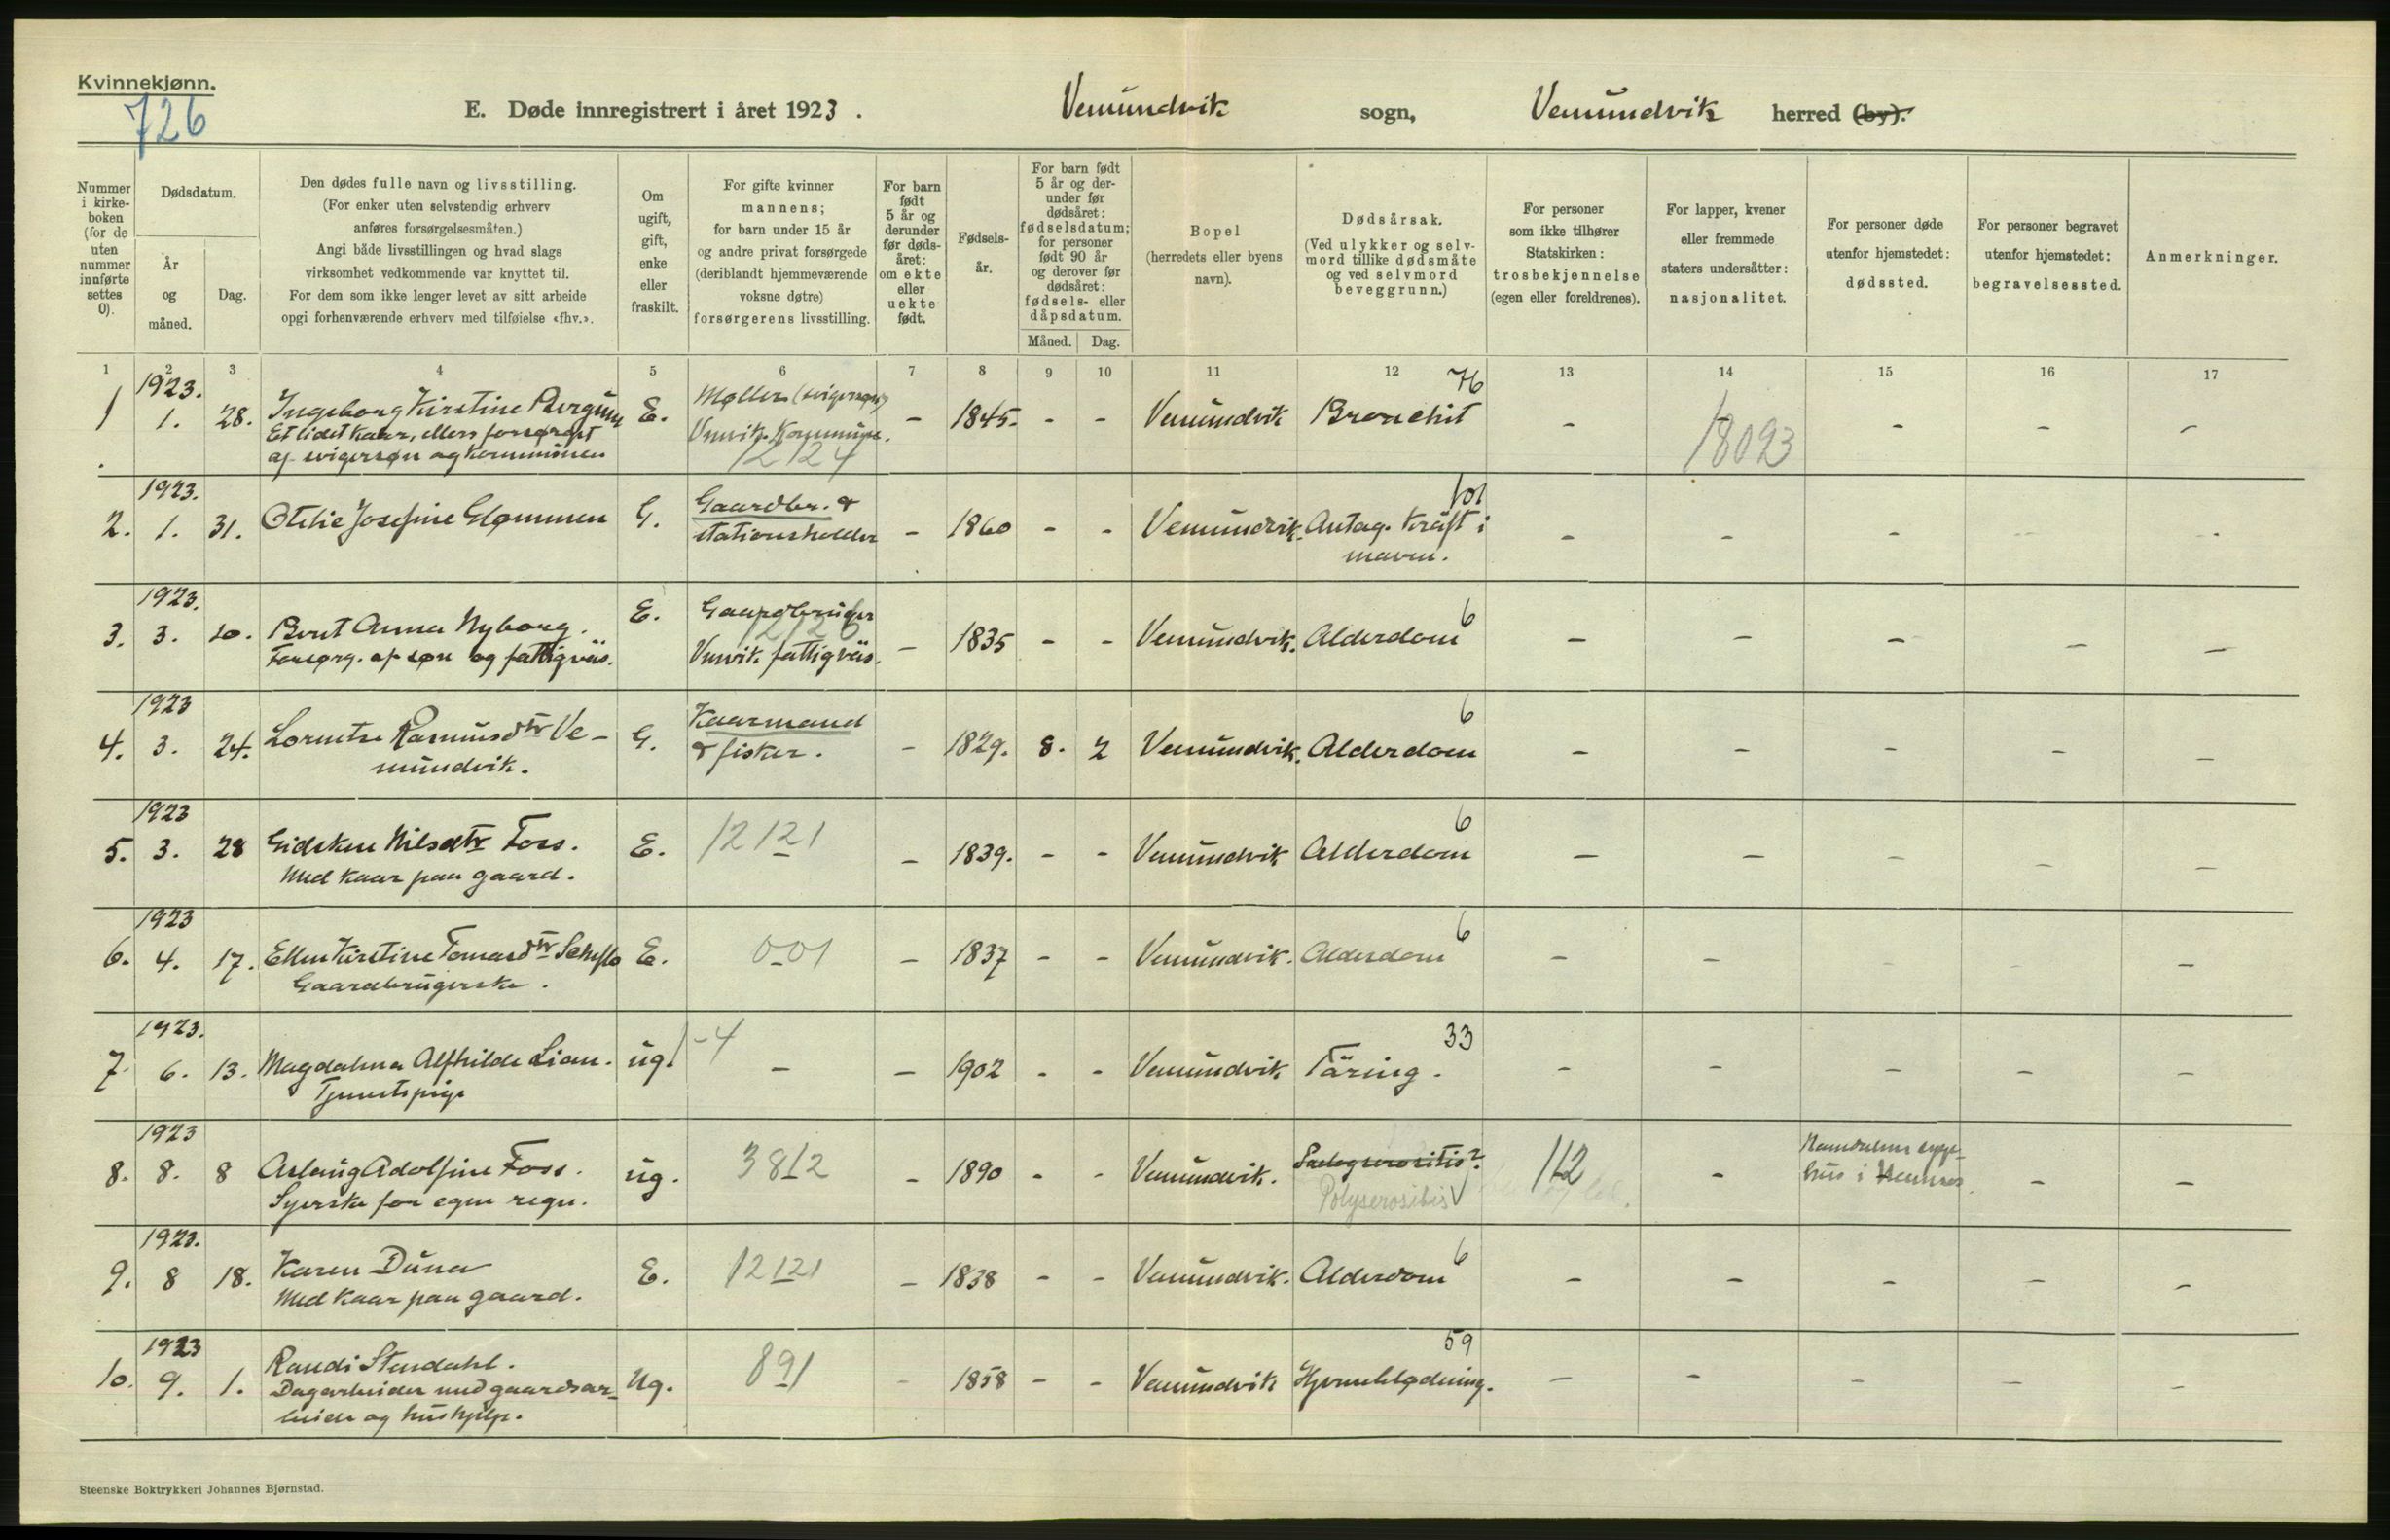 Kvinnekjønn.
726
E. Døde innregistrert i året 1923.
Vemundvik sogn, Vemundvik herred (by).
Nummer i kirkeboken (for de uten nummer innførte settes 0).
Dødsdatum.
År og måned.
Dag.
Den dødes fulle navn og livsstilling.
(For enker uten selvstendig erhverv
anføres forsørgelsesmåten.)
Angi både livsstillingen og hvad slags
virksomhet vedkommende var knyttet til.
For dem som ikke lenger levet av sitt arbeide
opgi forhenværende erhverv med tilføielse «fhv.».
Om
ugift,
gift,
enke
eller
fraskilt.
For gifte kvinner
mannens;
for barn under 15 år
og andre privat forsørgede
(deriblandt hjemmeværende
voksne døtre)
forsørgerens livsstilling.
For barn
født
5 år og
derunder
før døds-
året:
om ekte
eller
uekte
født.
Fødsels-
år.
For barn født
5 år og der-
under før
dødsåret:
fødselsdatum;
for personer
født 90 år
og derover før
dødsåret:
fødsels- eller
dåpsdatum.
Måned. Dag.
Bopel
(herredets eller byens
navn).
Dødsårsak.
(Ved ulykker og selv-
mord tillike dødsmåte
og ved selvmord
beveggrunn.)
For personer
som ikke tilhører
Statskirken:
trosbekjennelse
(egen eller foreldrenes).
For lapper, kvener
eller fremmede
staters undersåtter:
nasjonalitet.
For personer døde
utenfor hjemstedet:
dødssted.
For personer begravet
utenfor hjemstedet:
begravelsessted.
Anmerkninger.
1 2 3 4 5 6 7 8 9 10 11 12 13 14 15 16 17
1923. Møller (svigersøn) 76
1 1. 28. Ingeborg Kirstine E. – 1845. - - Vemundvik Bronchit – – – –
Et lidet kaar, ellers forsørget Vmvik. Kommune. 18093
af svigersøn og kommunen 12124
1923. Gaardbr. & 101
2. 1. 31. Otelie Josefine Glømmen G. stationsholder – 1860 - - Vemundvik. Antag. Kræft i – – – – –
maven.
1923. E. Gaardbruger 6
3. 3. 20. Berit Anna Nyborg. 12126 – 1835 - - Vemundvik. Alderdom – – – – –
Forsørg. af søn og fattigvæs. Vmvik. fattigvæs.
1923 Kaarmand 6
4. 3. 24. Lorentse Rasmusdtr Ve- G. & fisker. – 1829. 8. 2 Vemundvik. Alderdom – – – – –
mundvik.
1923 6
5. 3. 28 Gidsken Nilsdtr Foss. E. 12121 – 1839. - - Vemundvik Alderdom – – – – –
Med kaar paa gaard.
1923 6
6. 4. 17. Ellen Kirstine E. 0-01 – 1837 - - Vemundvik. Alderdom – – – – –
Gaardbrugerske.
1923. 33
7. 6. 13. Magdalena Alfhilde Lian. ug. 1-4 – – 1902 - - Vemundvik Tæring. – – – – –
Tjenestepige
1923 Namdalens syge-
8. 8. 8 Aslaug Adolfine Foss. ug. 3812 – 1890 - - Vemundvik. 112 – hus i – –
Syerske for egen regn. Polyserositis
1923. 6
9. 8 18. Karen Duna E. 12121 – 1838 - - Vemundvik. Alderdom – – – – –
Med kaar paa gaard.
1923 59
10. 9. 1. Randi Stendahl. Ug. 891 - 1858 - - Vemundvik Hjerneblødning. – – – – –
Dagarbeider med gaardsar-
beide og hushjelp.
Steenske Boktrykkeri Johannes Bjørnstad.